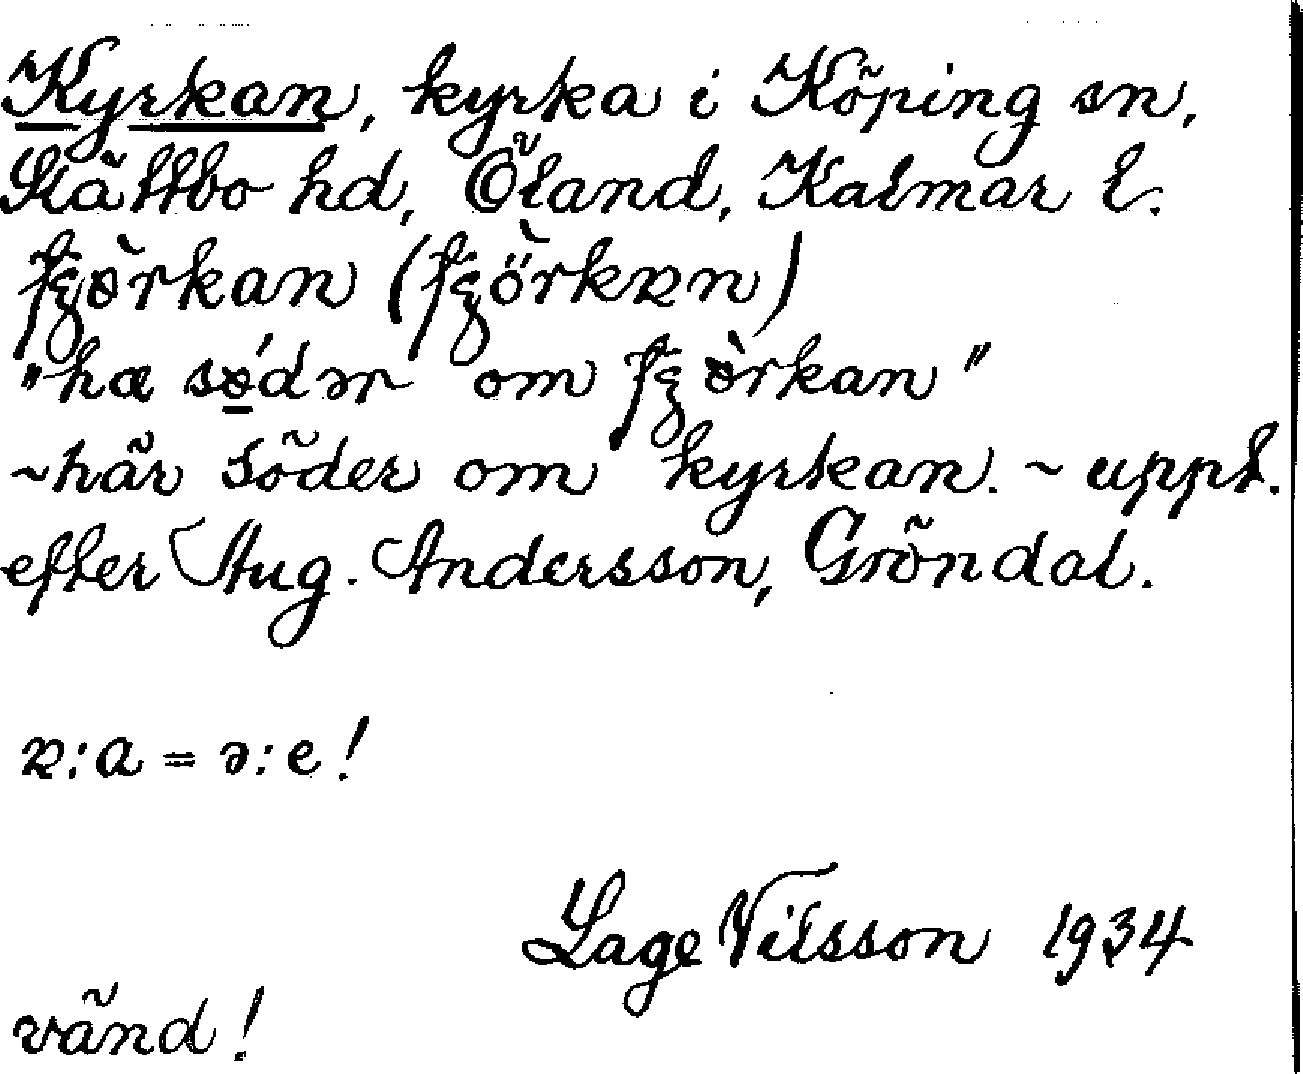 Kyrkan, kyrka i Köping sn,
Slättbo hd, Öland, Kalmar l.
om
~ här söder om kyrkan. ~ uppt.
efter Aug. Andersson, Gröndal.
ɐ:a = ə:e!
Lage Nilsson 1934
vänd!